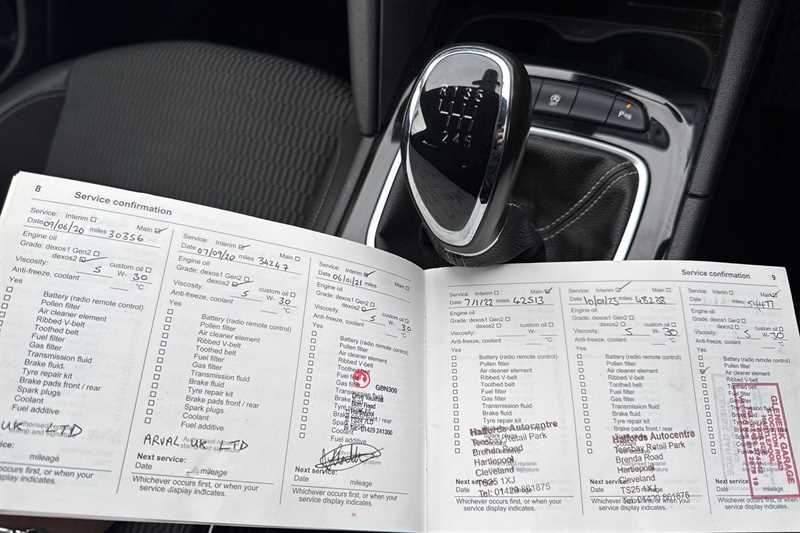 R 1 3 5
2 4 6
8
Service confirmation
Service: Interim Main
Date 09/06/20 miles 30356
Engine oil
Grade: dexos1 Gen2
dexos2 custom oil
Viscosity: 5 W- 30
Anti-freeze, coolant °C
Yes
Battery (radio remote control)
Pollen filter
Air cleaner element
Ribbed V-belt
Toothed belt
Fuel filter
Gas filter
Transmission fluid
Brake fluid
Tyre repair kit
Brake pads front / rear
Spark plugs
Coolant
Fuel additive
UK LTD
Next service:
Date mileage
Whichever occurs first, or when your
service display indicates.
Service: Interim Main
Date 07/09/20 miles 34247
Engine oil
Grade: dexos1 Gen2
dexos2 custom oil
Viscosity: 5 W- 30
Anti-freeze, coolant °C
Yes
Battery (radio remote control)
Pollen filter
Air cleaner element
Ribbed V-belt
Toothed belt
Fuel filter
Gas filter
Transmission fluid
Brake fluid
Tyre repair kit
Brake pads front / rear
Spark plugs
Coolant
Fuel additive
ARVAL UK LTD
Next service:
Date mileage
Whichever occurs first, or when your
service display indicates.
Service: Interim Main
Date 06/01/21 miles
Engine oil
Grade: dexos1 Gen2
dexos2 custom oil
Viscosity: 5 W- 30
Anti-freeze, coolant
Yes
Battery (radio remote control)
Pollen filter
Air cleaner element
Ribbed V-belt
Toothed belt
Fuel filter
Gas filter
GBN309
Brake fluid
Tyre repair kit
Brake pads
Spark plugs
Coolant
Fuel additive
Next service:
Date mileage
Whichever occurs first, or when your
service display indicates.
Service confirmation
9
Service: Interim Main
Date 7/1/22 miles 42513
Engine oil
Grade: dexos1 Gen2
dexos2 custom oil
Viscosity: W-
Anti-freeze, coolant °C
Yes
Battery (radio remote control)
Pollen filter
Air cleaner element
Ribbed V-belt
Toothed belt
Fuel filter
Gas filter
Transmission fluid
Brake fluid
Tyre repair kit
Brake pads front / rear
Spark plugs
Halfords Autocentre
Teesbay Retail Park
Brenda Road
Hartlepool
Cleveland
TS25 1XJ
Tel: 01429 861875
Next service:
Date mileage
Whichever occurs first, or when your
service display indicates.
Service: Interim Main
Date 10/01/23 miles 48288
Engine oil
Grade: dexos1 Gen2
dexos2 custom oil
Viscosity: 5 W- 30
Anti-freeze, coolant °C
Yes
Battery (radio remote control)
Pollen filter
Air cleaner element
Ribbed V-belt
Toothed belt
Fuel filter
Gas filter
Transmission fluid
Brake fluid
Tyre repair kit
Brake pads front / rear
Spark plugs
Halfords Autocentre
Teesbay Retail Park
Brenda Road
Hartlepool
Cleveland
TS25 1XJ
Tel: 01429 861875
Next service:
Date mileage
Whichever occurs first, or when your
service display indicates.
Service: Interim Main
Date miles
Engine oil
Grade: dexos1 Gen2
dexos2 custom oil
Viscosity: 5 W- 30
Anti-freeze, coolant °C
Yes
Battery (radio remote control)
Pollen filter
Air cleaner element
Ribbed V-belt
Toothed belt
Fuel filter
Gas filter
Transmission fluid
Brake fluid
Tyre repair kit
Brake pads
Spark plugs
Coolant
Fuel additive
GARAGE
Next service:
Date mileage
Whichever occurs first, or when your
service display indicates.